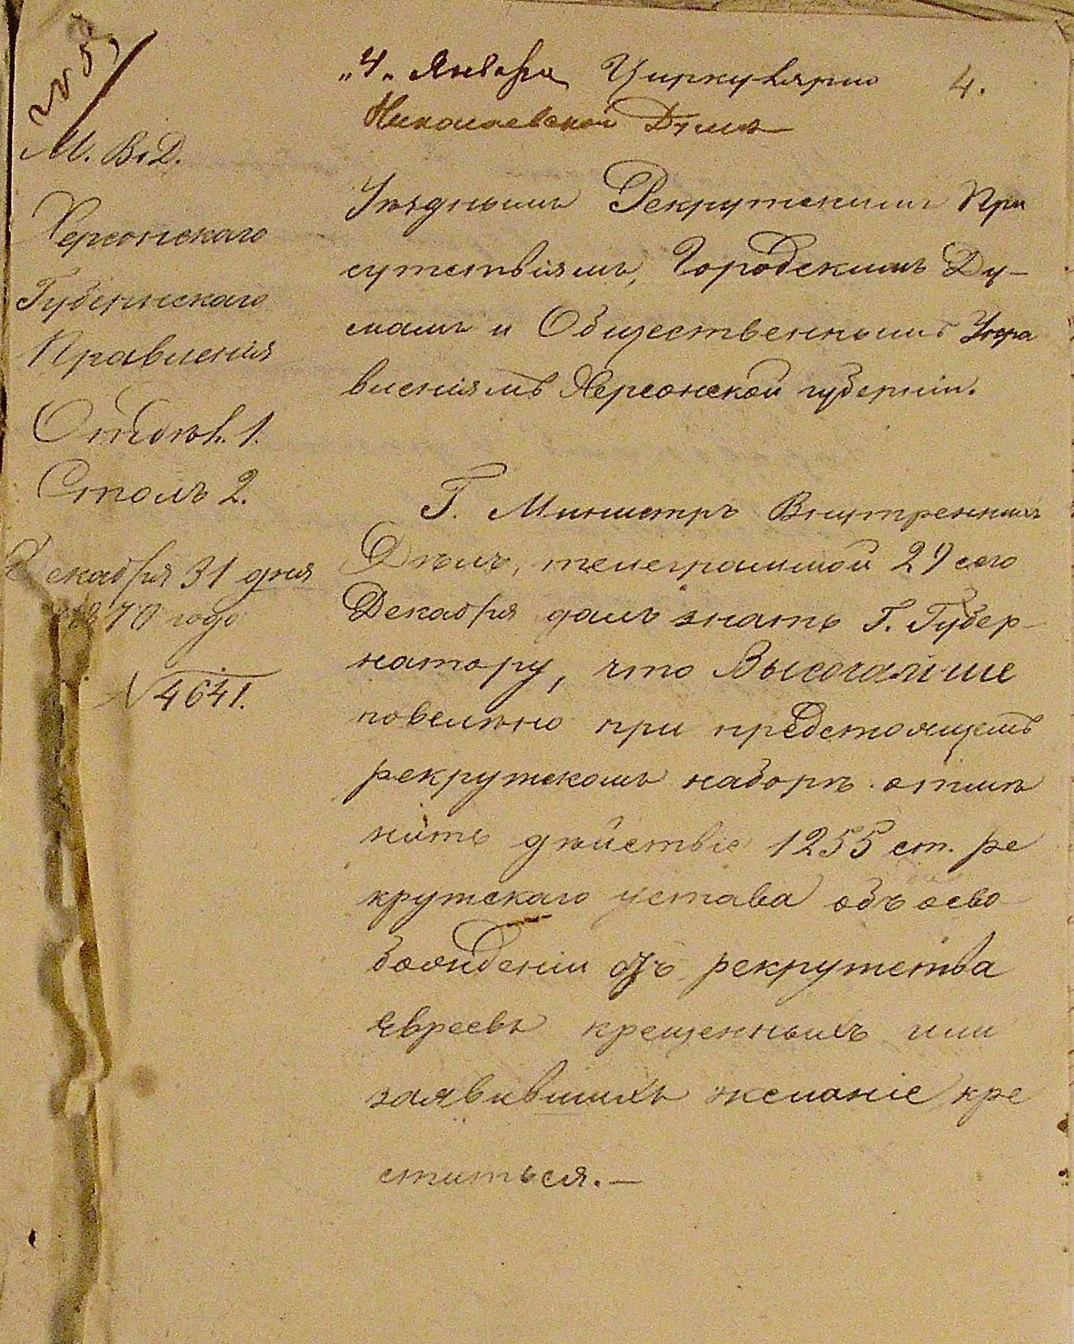 „4„ Января Циркулярно 4.
Николаевской Думѣ
М. В. Д.
Херсонскаго
Губернскаго
Правленія
Отдѣл. 1.
Столъ 2.
Декабря 31 дня
1870 года
№ 4641.
Уѣзднымъ Рекрутскимъ При
сутствіямъ, Городскимъ Ду-
мамъ и Общественнымъ Упра
вленіямъ Херсонской губерніи.
Г. Министръ Внутреннихъ
Дѣлъ, телеграммой 29 сего
Декабря далъ знать Г. Губер-
натору, что Высочайше
повелѣно при предстоящемъ
рекрутскомъ наборѣ отмѣ
нить дѣйствіе 1255 ст. ре
крутскаго устава объ осво
божденіи отъ рекрутства
евреевъ крещенныхъ или
заявившихъ желаніе кре
ститься.—